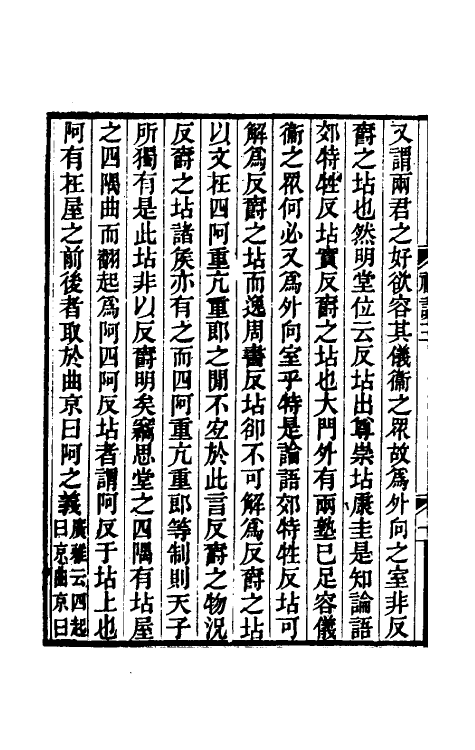 又謂兩君之好欲容其儀衞之眾故爲外向之室非反
爵之坫也然明堂位云反坫出尊崇坫康圭是知論語
郊特牲反坫實反爵之坫也大門外有兩塾已足容儀
衞之眾何必又爲外向室乎特是論語郊特牲反坫可
解爲反爵之坫而逸周書反坫卻不可解爲反爵之坫
以文在四阿重亢重郎之閒不宏於此言反爵之物況
反爵之坫諸矦亦有之而四阿重亢重郎等制則天子
所獨有是此坫非以反爵明矣竊思堂之四隅有坫屋
之四隅曲而翻起爲阿四阿反坫者謂阿反于坫上也
阿有在屋之前後者取於曲京曰阿之義廣雅云四起
曰京曲京曰